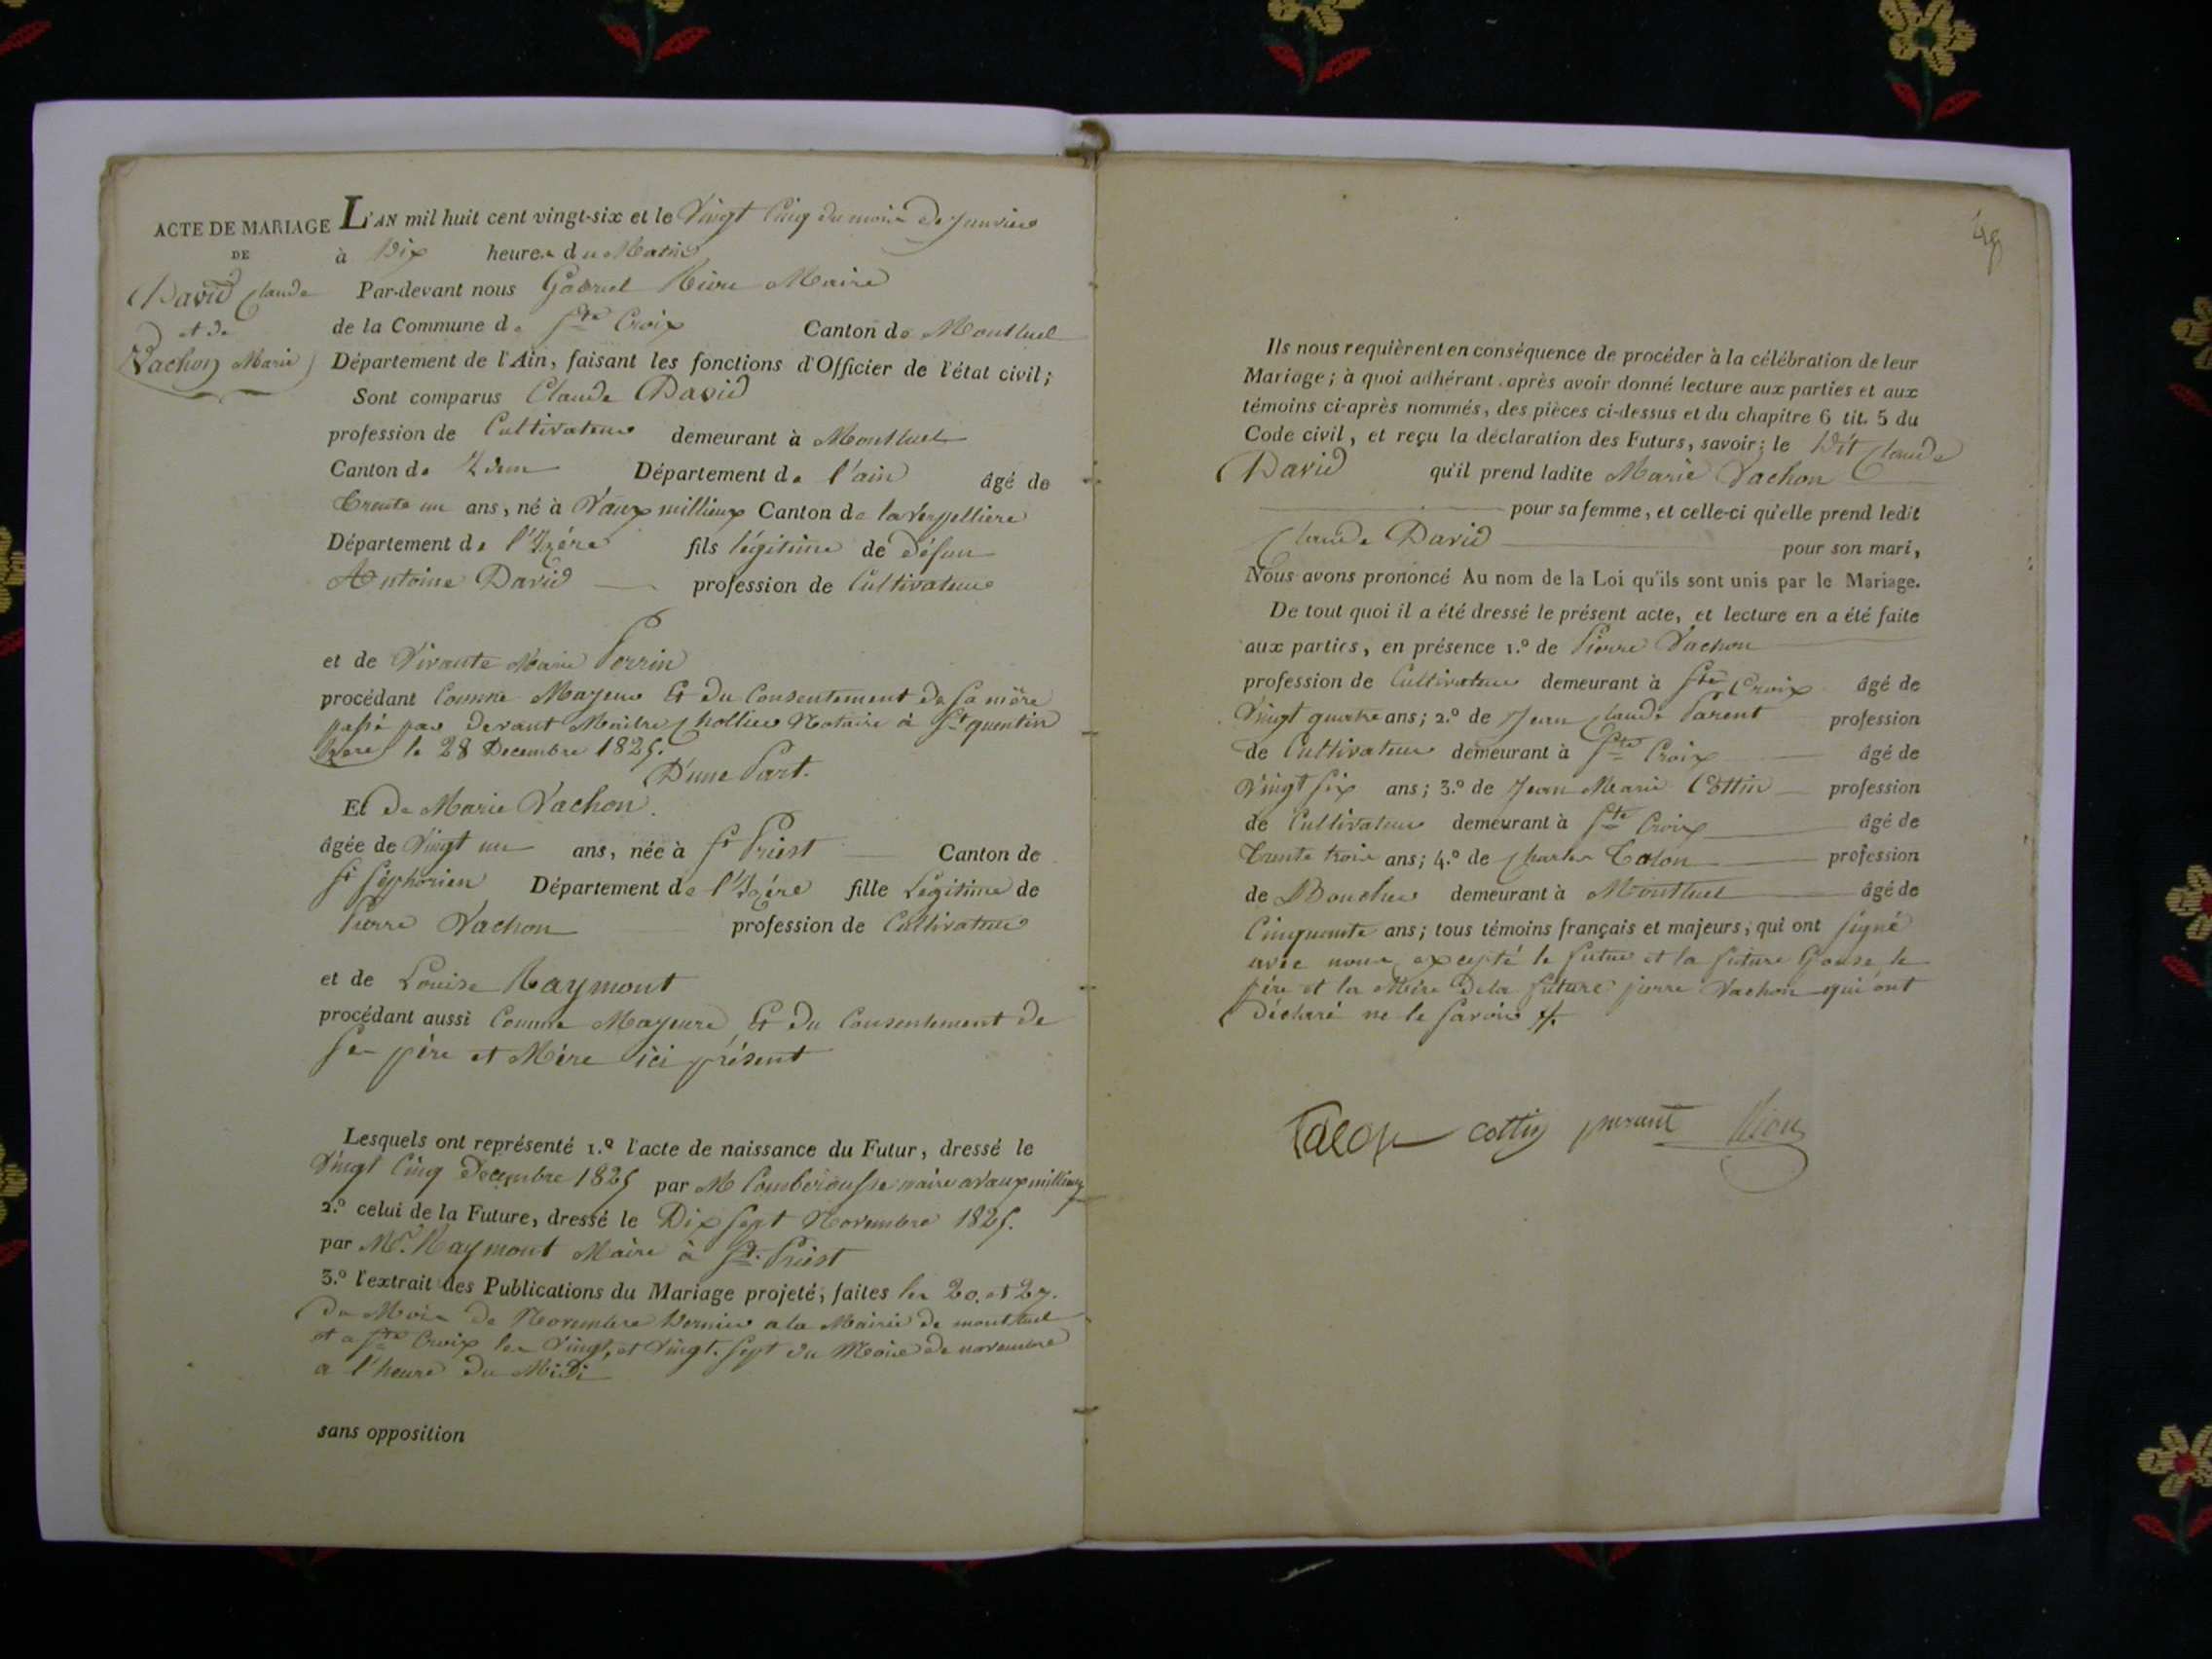 ACTE DE MARIAGE
DE
David Claude
et de
Vachon Marie
L'AN mil huit cent vingt-six et le Vingt Cinq du mois de Janvier
à Dix heures du Matin
Par-devant nous Gabriel Maire
de la Commune de Ste Croix Canton de Montluel
Département de l'Ain, faisant les fonctions d'Officier de l'état civil;
Sont comparus Claude David
profession de Cultivateur demeurant à Montluel
Canton de Idem Département de l'ain âgé de
trente un ans, né à Vaux millieux Canton de la Verpelliere
Département de l'Izére fils légitime de défun
Antoine David profession de Cultivateur
et de Vivante Marie Perrin
procédant Comme Mayeur Et du Consentement de Sa mère
passé par devant Maitre Chollier Notaire à St quentin
Izere le 28 Decembre 1825.
D'une Part.
Et De Marie Vachon.
âgée de Vingt un ans, née à St Priest Canton de
St Siphorien Département de l'Izére fille Légitime de
Pierre Vachon profession de Cultivateur
et de Louise Raymont
procédant aussi Comme Mayeure Et du Consentement de
Ses père et Mère ici présent
Lesquels ont représenté 1.º l'acte de naissance du Futur, dressé le
Vingt Cinq Decembre 1825 par M Comberousse maire a Vaux millieux
2.º celui de la Future, dressé le Dix Sept Novembre 1825.
par Mr. Raymont Maire à St. Priest
3.º l'extrait des Publications du Mariage projeté, faites les 20. et 27.
du Mois de Novembre Dernier a la Mairie de montluel
et a Ste Croix les Vingt, et Vingt. Sept du Mois de novembre
a l'heure du Midi
sans opposition
49
Ils nous requièrent en conséquence de procéder à la célébration de leur
Mariage; à quoi adhérant, après avoir donné lecture aux parties et aux
témoins ci-après nommés, des pièces ci-dessus et du chapitre 6 tit. 5 du
Code civil, et reçu la déclaration des Futurs, savoir; le Dit Claude
David qu'il prend ladite Marie Vachon
pour sa femme, et celle-ci qu'elle prend ledit
Claude David pour son mari,
Nous avons prononcé Au nom de la Loi qu'ils sont unis par le Mariage.
De tout quoi il a été dressé le présent acte, et lecture en a été faite
aux parties, en présence 1.º de Pierre Vachon
profession de Cultivateur demeurant à Ste Croix âgé de
Vingt quatre ans; 2.º de Jean Claude Parent profession
de Cultivateur demeurant à Ste Croix âgé de
Vingt Six ans; 3.º de Jean Marie Cottin profession
de Cultivateur demeurant à Ste Croix âgé de
Trente trois ans; 4.º de Charles Talon profession
de Boucher demeurant à Montluel âgé de
Cinquante ans; tous témoins français et majeurs; qui ont Signé
avec nous excepté le futur et la future Epouse le
père et la Mère de la future pierre Vachon qui ont
Déclaré ne le Savoir
Talon cottin parant